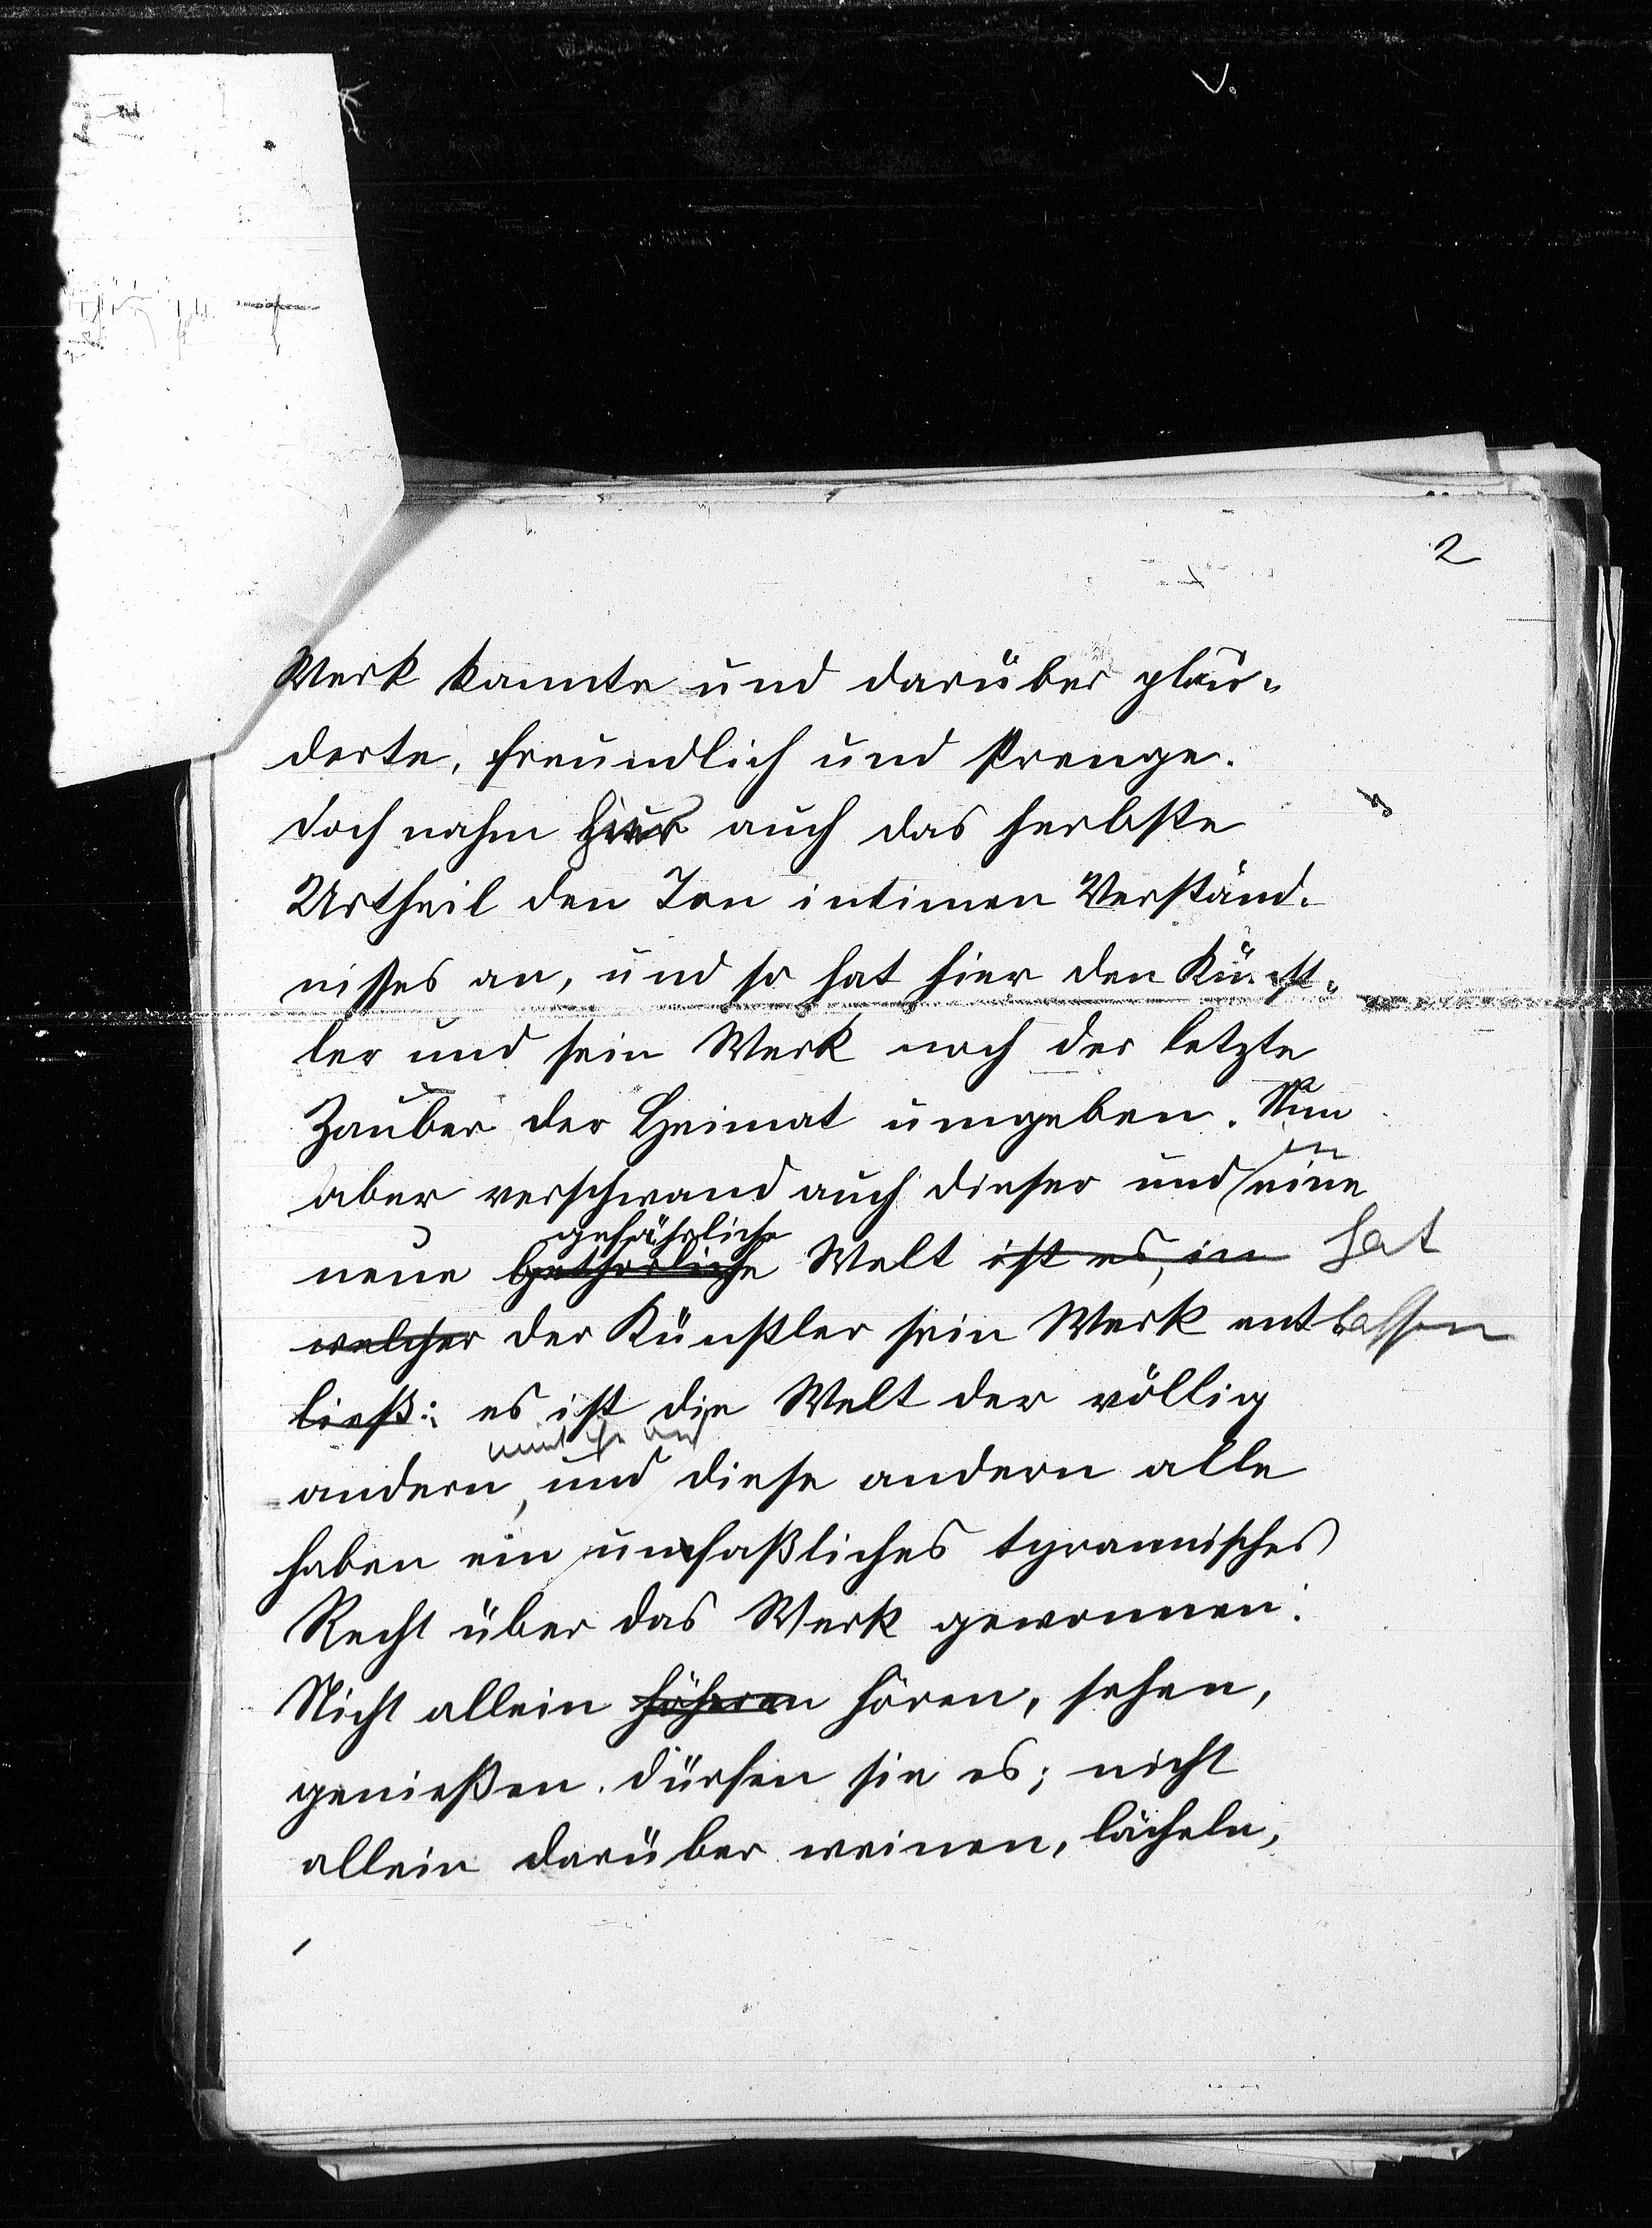 V.
2
Werk kannte und darüber plau-
derte, freundlich und strenge.
Doch nahm hier auch das herbste
Urtheil den Ton intimen Verständ-
nisses an, und so hat hier den Künst-
ler und sein Werk noch der letzte
Zauber der Heimat umgeben. Nun
in
aber verschwand auch dieser und eine
gefährliche
neue Welt ist es, in hat
welcher der Künstler sein Werk entlassen
ließ: es ist die Welt der völlig
andern, und diese andern alle
haben ein unfaßliches tyrannisches
Recht über das Werk gewonnen:
Nicht allein höheren hören, sehen,
genießen dürfen sie es; nicht
allein darüber weinen, lächeln,